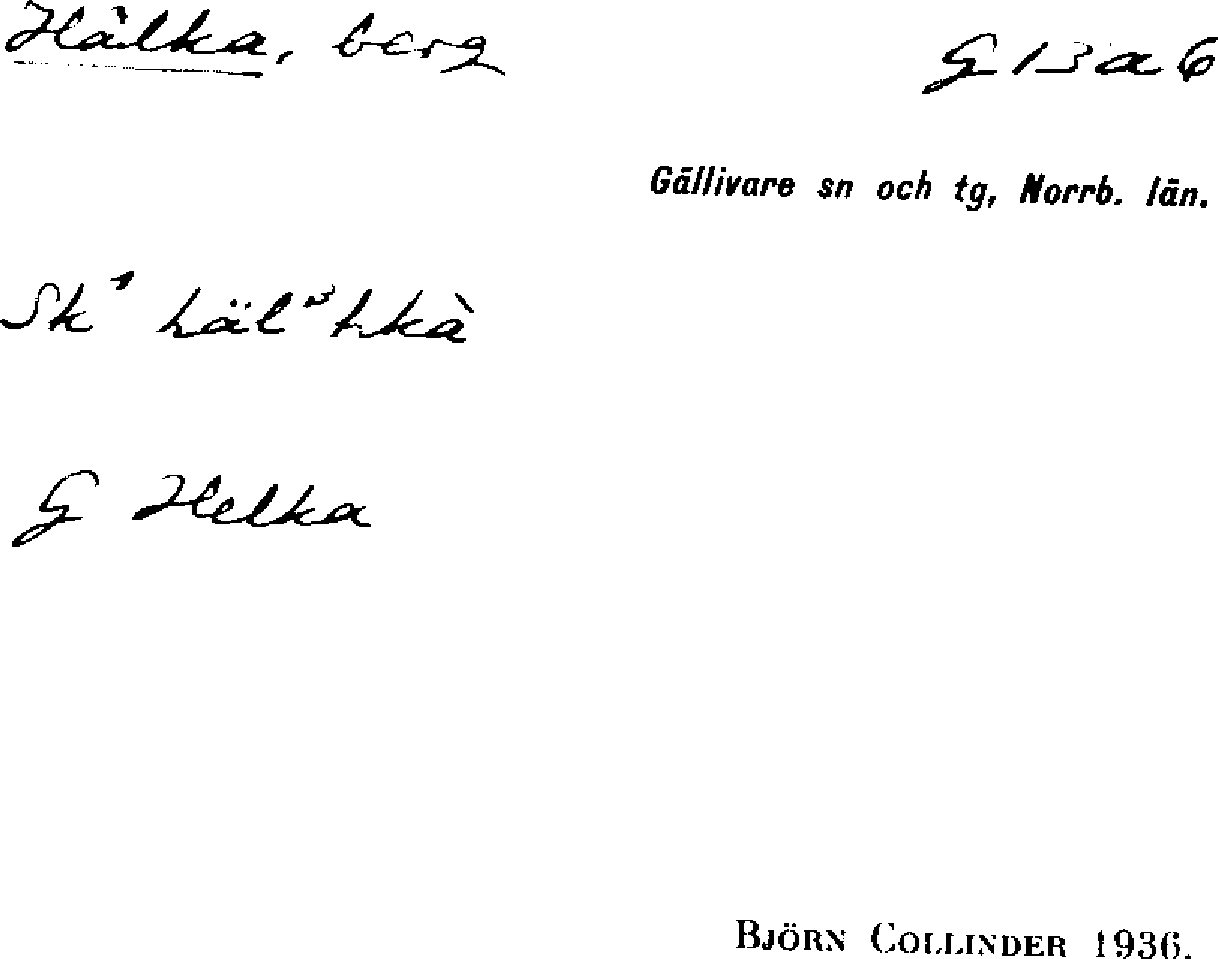 Hàlka, berg
G 13 a 6
Gällivare sn och tg, Norrb. län.
Sk¹ häl hkà
G Helka
BJÖRN COLLINDER 1936.